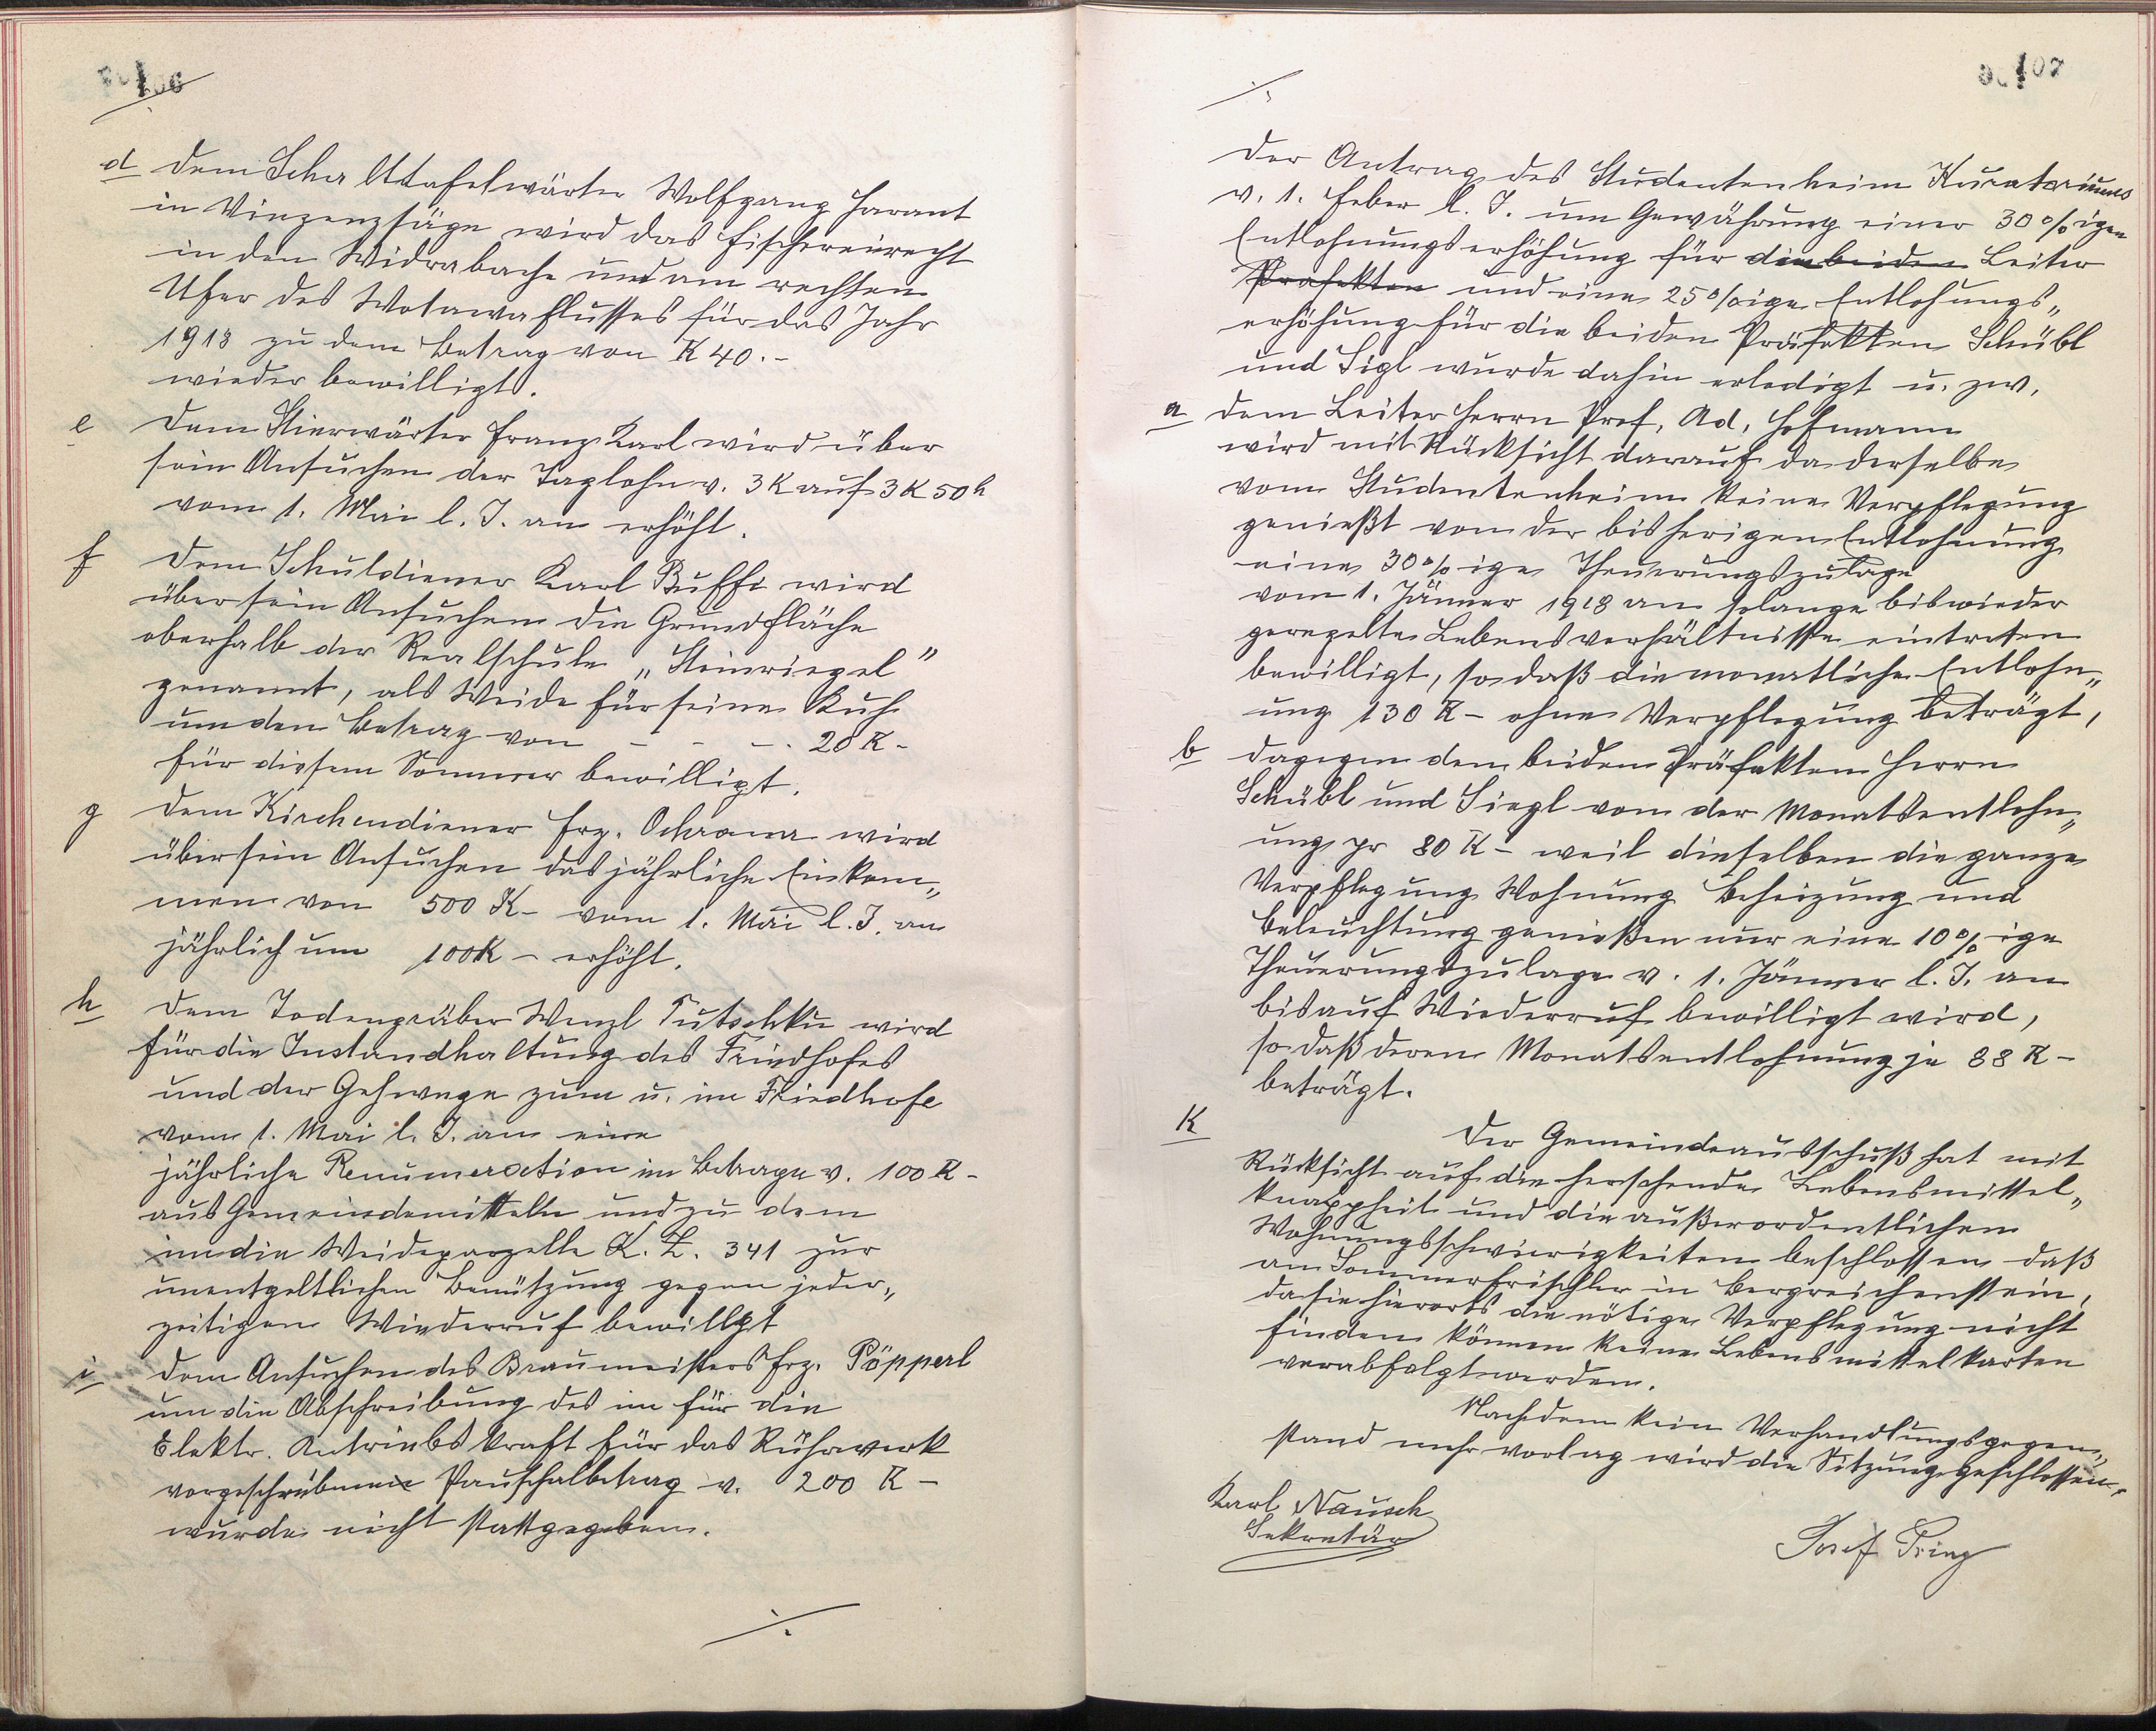 106
d dem Schalttafelwärter Wolfgang Harant
in Vinzenzsäge wird das Fischereirecht
in den Widrabache und am rechten
Ufer des Wotawaflusses für das Jahr
1918 zu dem Betrag von K 40.-
wieder bewilligt.
e Dem Stierwärter Franz Karl wird über
sein Ansuchen der Taglohn v. 3 K auf 3 K 50 h
vom 1. Mai l. J. an erhöht.
f Dem Schuldiener Karl Buffi wird
über sein Ansuchen die Grundfläche
oberhalb der Realschule „Steinriegel"
genannt, als Weide für seine Kuh
um den Betrag von - - - . 20 K -
für diesem Sommer bewilligt.
g dem Kirchendiener Frz. Ochrana wird
über sein Ansuchen das jährliche Einkom„
men von 500 K - vom 1. Mai l. J. an
jährlich um 100 K - erhöht.
h dem Todengräber Wenzl Tutschku wird
für die Instandhaltung des Friedhofes
und der Gehwege zum u. im Friedhofe
vom 1. Mai l. J. an eine
jährliche Renumeration im Betrage v. 100 K -
aus Gemeindemitteln und zu dem
die Weideparzelle K. Z. 341 zur
unentgeltlichen Benützung gegen jeder„
zeitigen Wiederruf bewilligt
i dem Ansuchen des Braumeisters Frz. Pöpperl
um die Abschreibung des im für die
Elektr. Antriebskraft für das Rührwerk
vorgeschriebenen Pauschalbetrag v. 200 K -
wurde nicht stattgegeben.
./.
107
./.
Der Antrag des Studentenheim Kuratoriums
v. 1. Feber l. J. um Gewährung einer 30 % igen
Entlohnungserhöhung für die beiden Leiter
Präfekten und eine 25 % ige Entlohungs„
erhöhung für die beiden Präfekten Schübl
und Sigl wurde dahin erledigt u. zw.
a dem Leiter Herrn Prof. Ad. Hofmann
wird mit Rücksicht darauf da derselbe
vom Studentenheim keine Verpflegung
genießt von der bisherigen Entlohnung
eine 30 % ige Theuerungszulage
vom 1. Jänner 1918 an solange bis wieder
geregelte Lebensverhältnisse eintreten
bewilligt, so daß die monatliche Entlohn„
ung 130 K - ohne Verpflegung beträgt,
b dagegen den beiden Präfekten Herrn
Schübl und Siegl von der Monatsentlohn„
ung pr 80 K - weil dieselben die ganze
Verpflegung Wohnung Beheizung und
Beleuchtung genießen nur eine 10 % ige
Theuerungszulage v. 1. Jänner l. J. an
bis auf Wiederruf bewilligt wird,
so daß deren Monatsentlohnung je 88 K -
beträgt.
K Der Gemeindeausschuß hat mit
Rücksicht auf die herschende Lebensmittel„
knappheit und die außerordentlichen
Wohnungsschwierigkeiten beschlossen daß
an Sommerfrischler in Bergreichenstein,
da sie hierorts die nötige Verpflegung nicht
finden können keine Lebensmittelkarten
verabfolgt werden.
Nachdem kein Verhandlungsgegen„
stand mehr vorlag wird die Sitzung geschlossen.
Karl Nausch
Sekretär
Josef Prinz